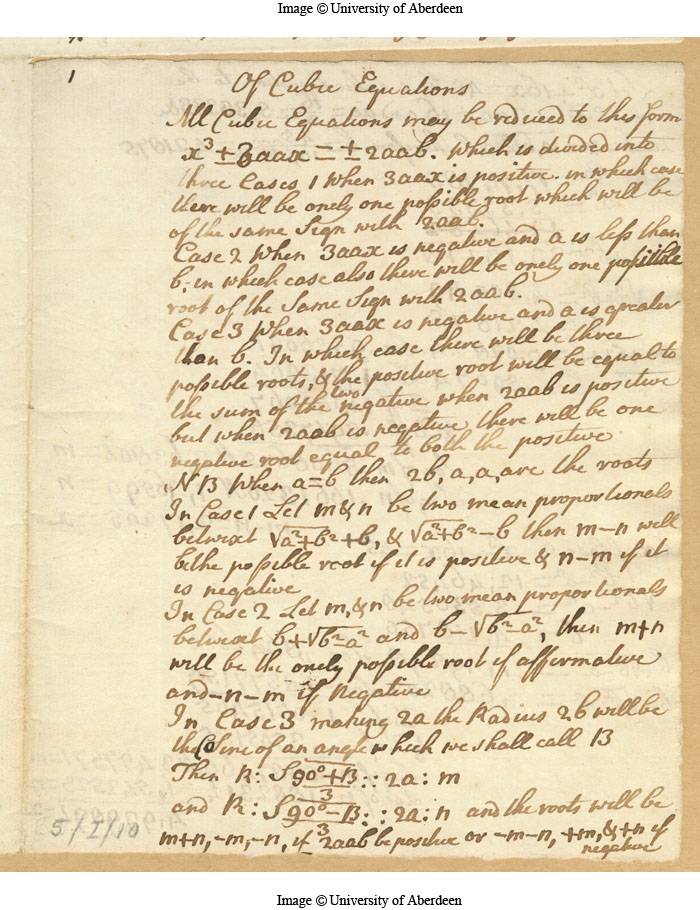 Image © University of Aberdeen
1
Of Cubic Equations
All Cubic Equations may be reduced to this form
x³ ± 3aax = ± 2aab. which is divided into
three Cases 1 When 3aax is positive. in which case
there will be onely one possible root which will be
of the same Sign with 2aab.
Case 2 When 3aax is negative and a is less than
b. in which case also there will be onely one possible
root of the Same Sign with 2aab.
Case 3 When 3aax is negative and a is greater
than b. In which case there will be three
possible roots, & the positive root will be equal to
the sum of the two negative when 2aab is positive
but when 2aab is negative there will be one
negative root equal to both the positive
NB When a=b then 2b, a, a, are the roots
In Case 1 Let m & n be two mean proportionals
betwixt √a²+b²+b, & √a²+b²-b then m-n will
be the possible root if it is positive & n-m if it
is negative
In Case 2 Let m, & n be two mean proportionals
betwixt b+√b²-a² and b-√b²-a², then m+n
will be the onely possible root if affirmative
and -n-m if Negative
In Case 3 making 2a the Radius 2b will be
the CoSine of an angle which we shall call B
Then R: S 90°+B/3 :: 2a: m
and R: S 90°-B/3 :: 2a: n and the roots will be
m+n, -m, -n, if 2aab be positive or -m-n, +m, & +n if
negative
5/I/10
Image © University of Aberdeen